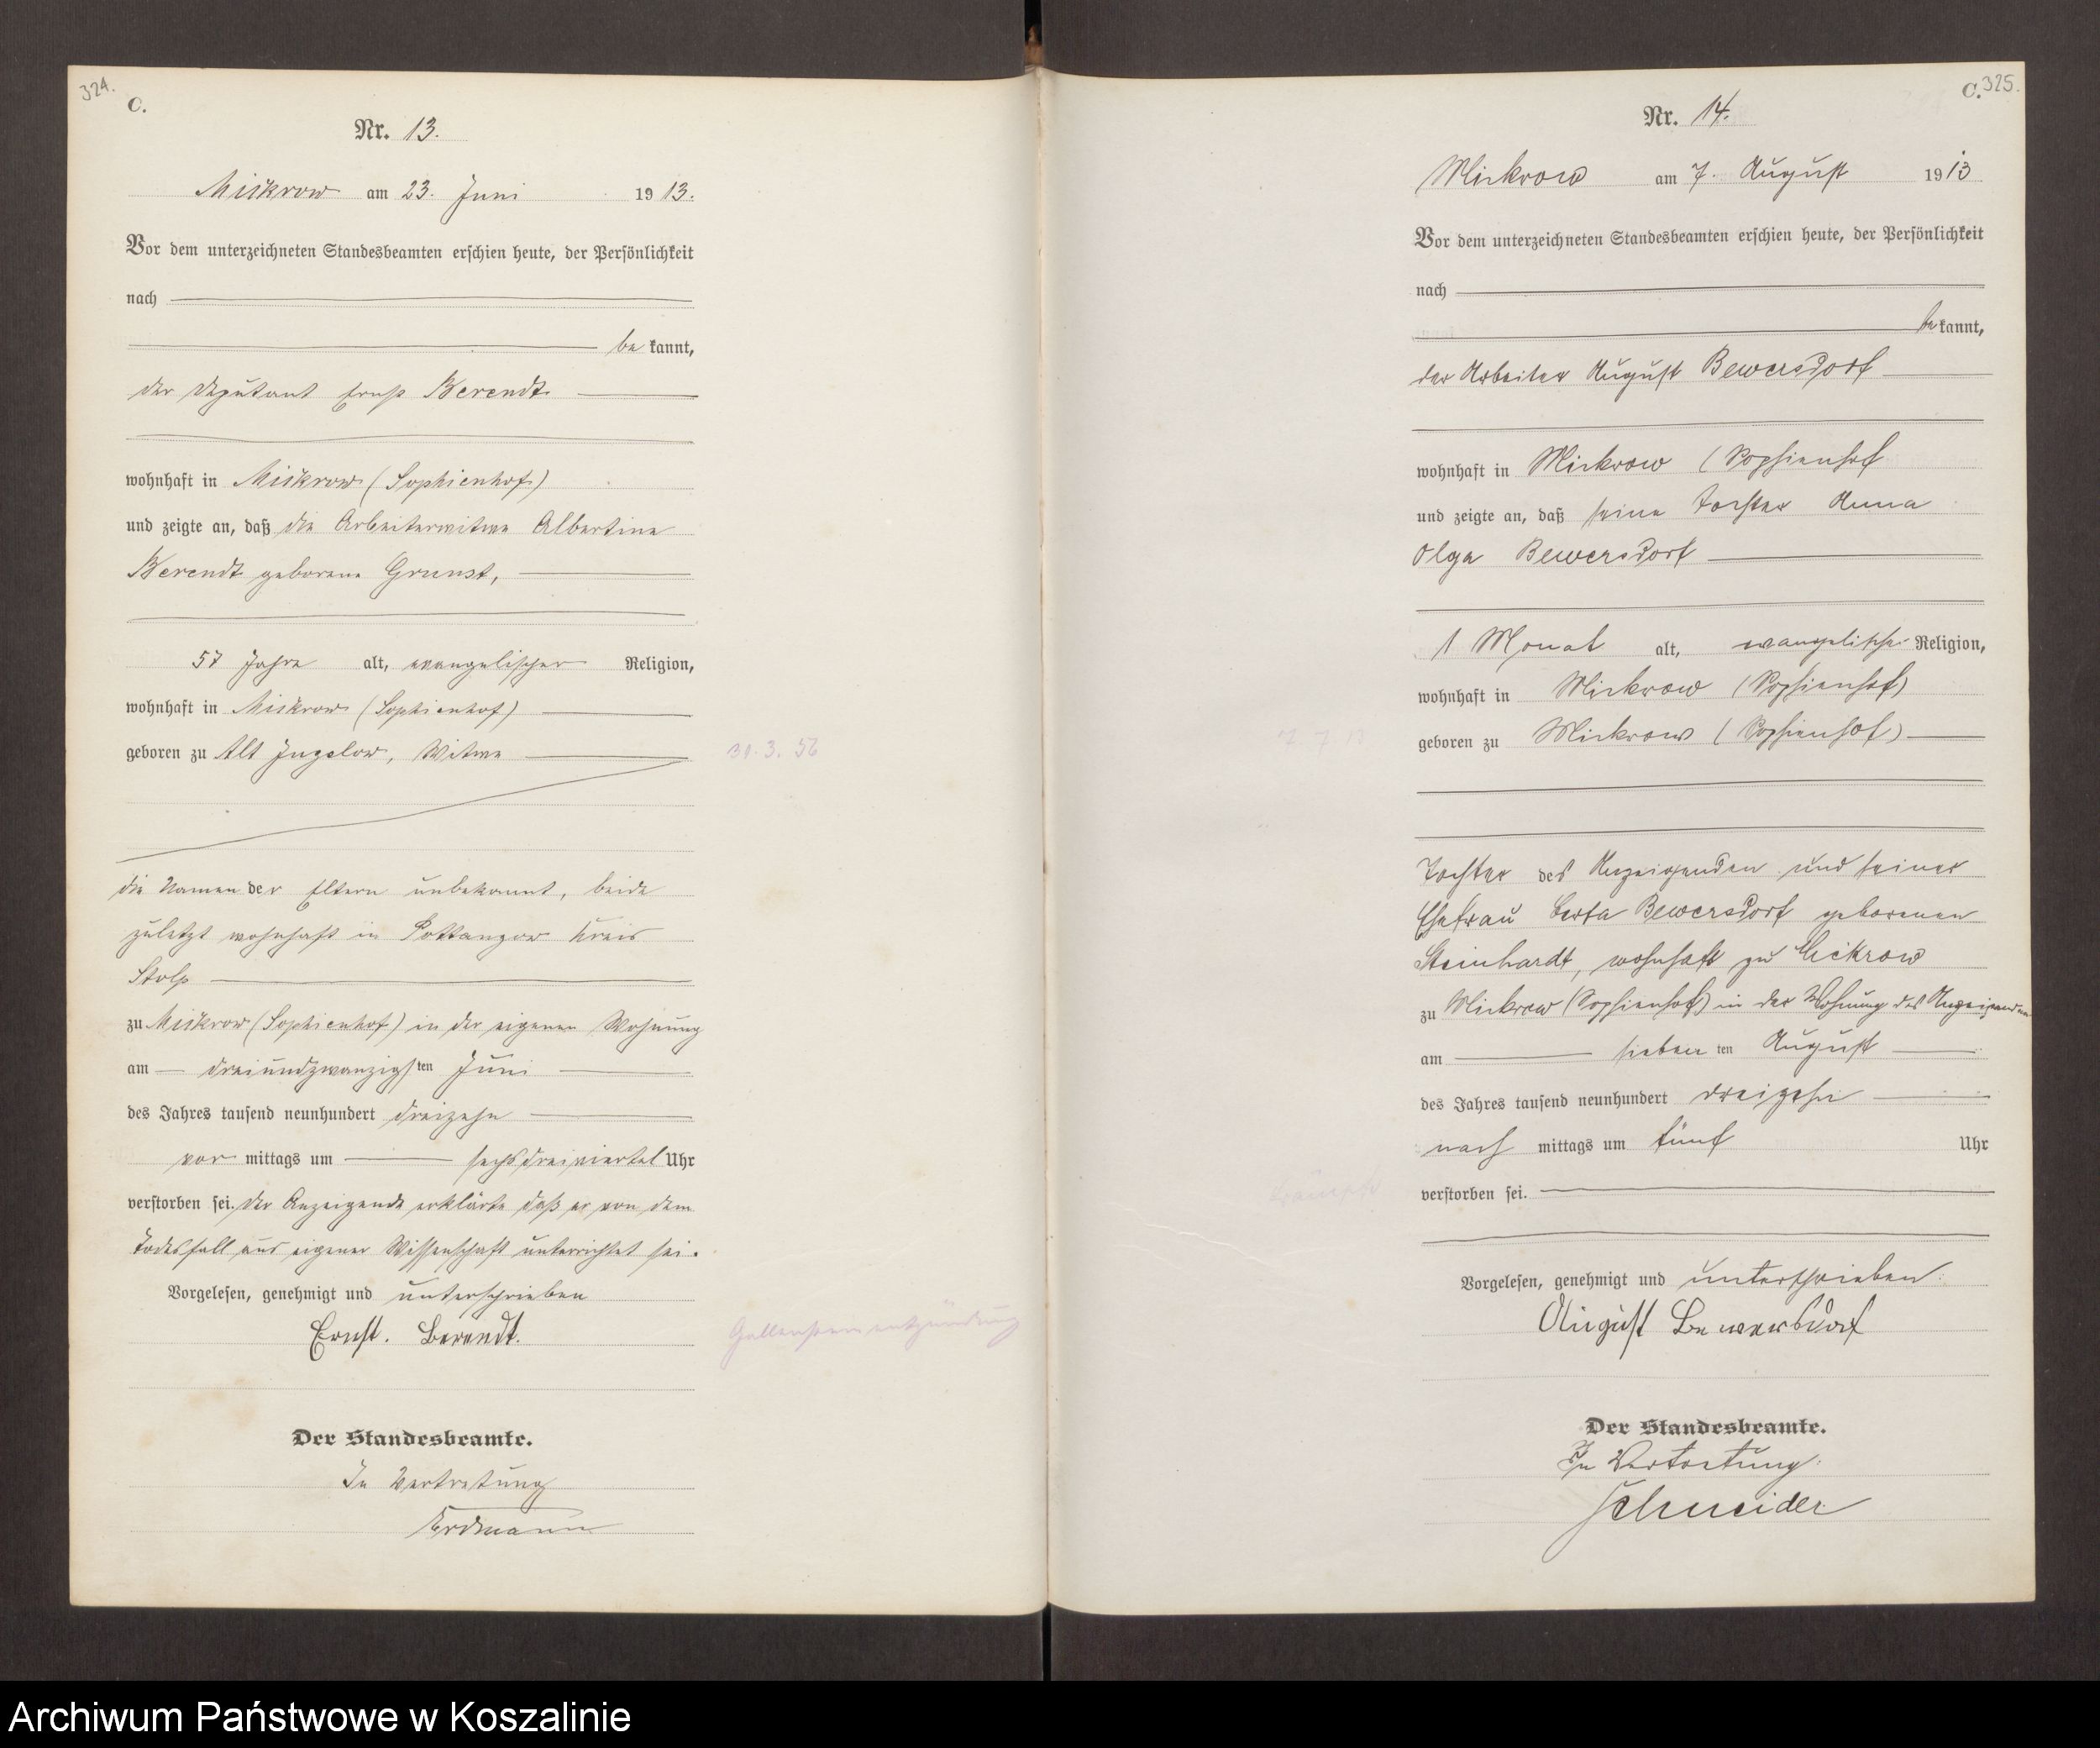 324.
C.
Nr. 13.
Mickrow am 23. Juni 1913.
Vor dem unterzeichneten Standesbeamten erschien heute, der Persönlichkeit
nach
be kannt,
der Deputant Ernst Berendt
wohnhaft in Mickrow (Sophienhof)
und zeigte an, daß die Arbeiterwitwe Albertine
Berendt geborene Grunst,
57 Jahre alt, evangelischer Religion,
wohnhaft in Mickrow (Sophienhof)
geboren zu Alt Jugelow, Witwe
30. 3. 56
die Namen der Eltern unbekannt, beide
zuletzt wohnhaft in Pottangow Kreis
Stolp
zu Mickrow (Sophienhof) in der eigenen Wohnung
am dreiundzwanzigsten Juni
des Jahres tausend neunhundert dreizehn
vor mittags um sechsdreiviertel Uhr
verstorben sei. Der Anzeigende erklärte daß er von dem
Todesfall aus eigener Wissenschaft unterrichtet sei.
Vorgelesen, genehmigt und unterschrieben
Ernst. Berendt.
Gallensteinentzündung
Der Standesbeamte.
In Vertretung
Erdmann
C. 325.
Nr. 14.
Mickrow am 7. August 1913
Vor dem unterzeichneten Standesbeamten erschien heute, der Persönlichkeit
nach
be kannt,
der Arbeiter August Bewersdorf
wohnhaft in Mickrow (Sophienhof
und zeigte an, daß seine Tochter Anna
Olga Bewersdorf
1 Monat alt, evangelischer Religion,
wohnhaft in Mickrow (Sophienhof)
geboren zu Mickrow (Sophienhof)
7 13
Tochter des Anzeigenden und seiner
Ehefrau Berta Bewersdorf geborenen
Steinhardt, wohnhaft zu Mickrow
zu Mickrow (Sophienhof) in der Wohnung des Anzeigenden
am sieben ten August
des Jahres tausend neunhundert dreizehn
nach mittags um fünf Uhr
verstorben sei.
Krämpfe
Vorgelesen, genehmigt und unterschrieben
August Bewersdorf
Der Standesbeamte.
In Vertretung
Schneider
Archiwum Państwowe w Koszalinie